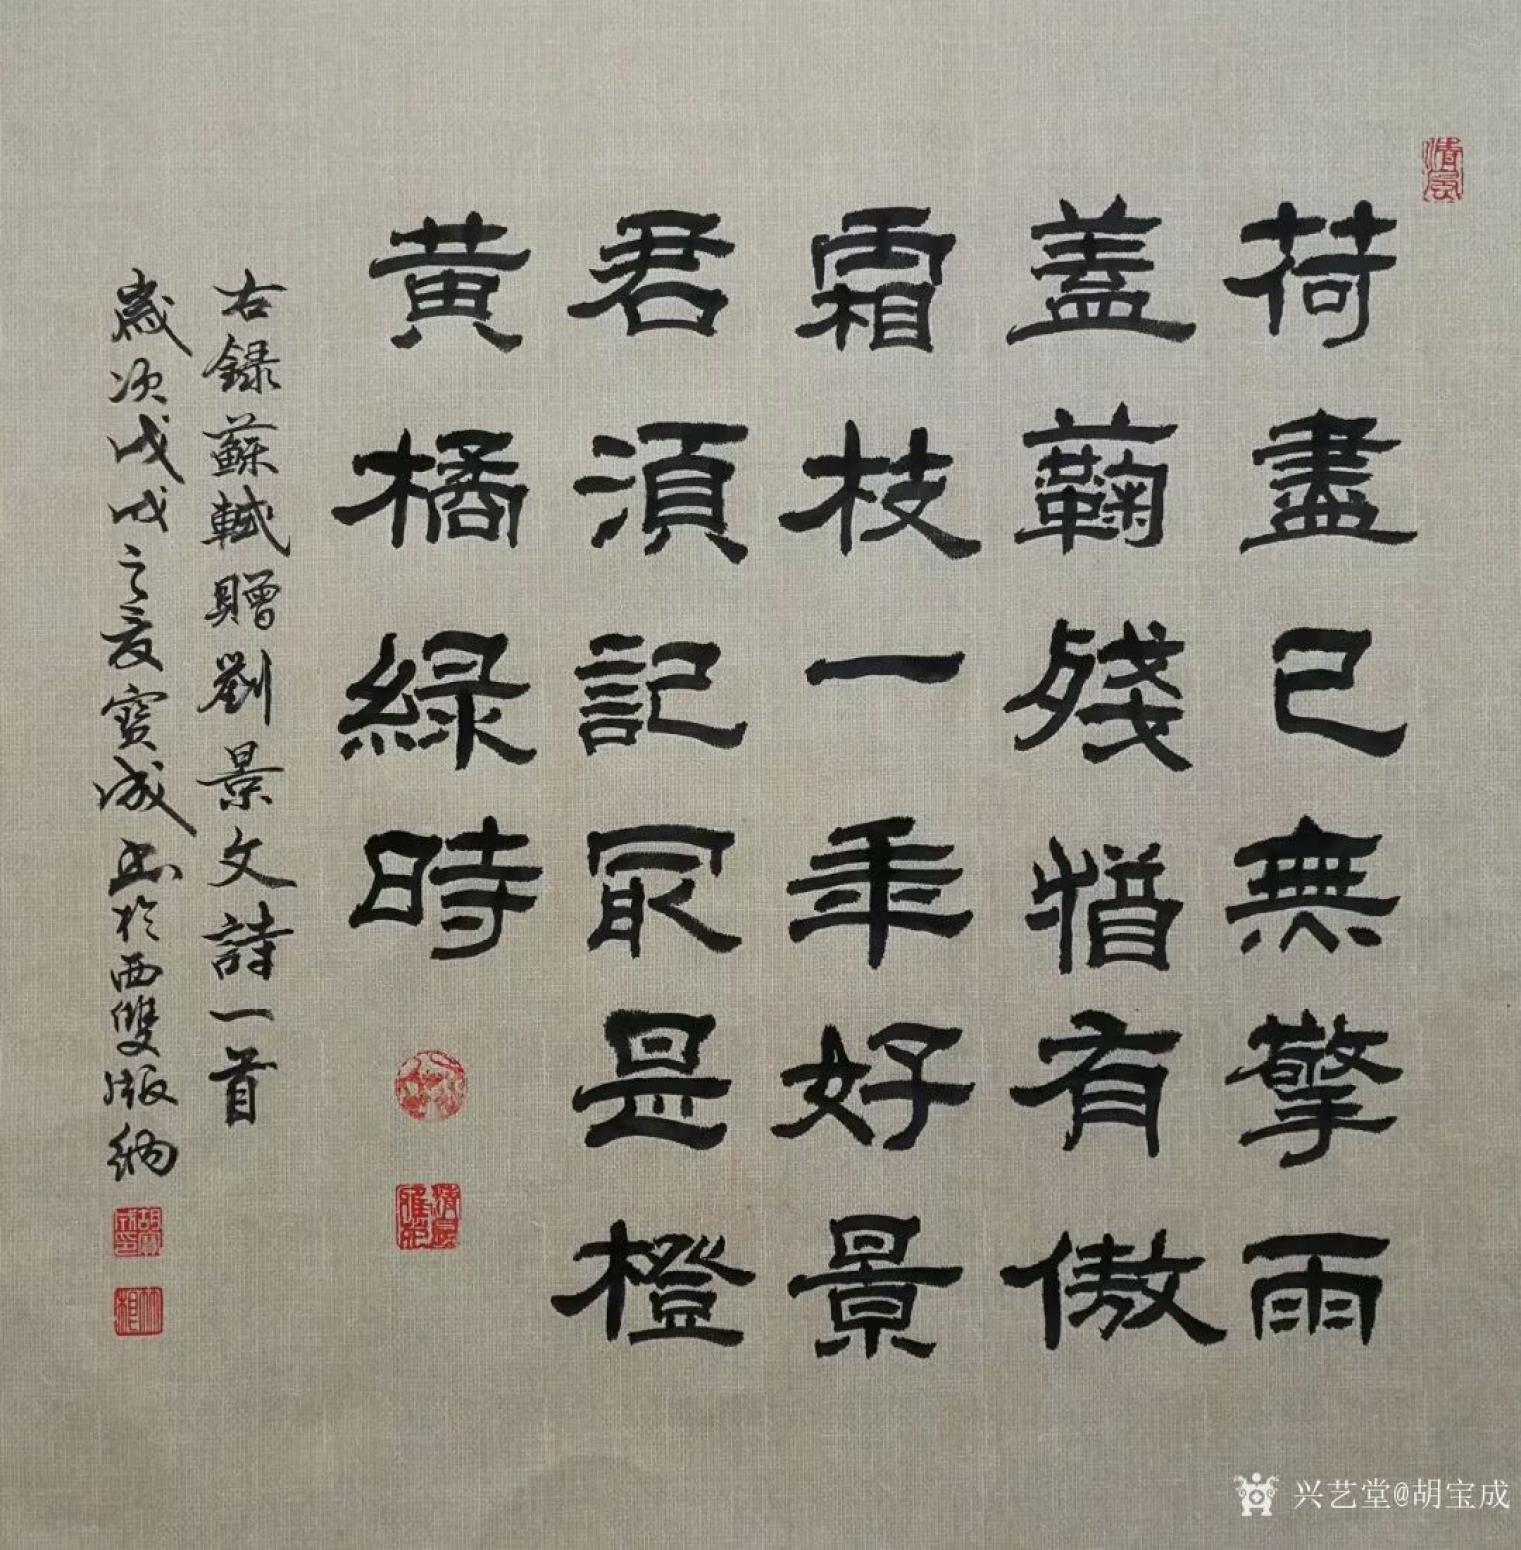 荷盡已無擎雨
蓋蘜殘猶有傲
霜枝一年好景
君須記冣是橙
黃橘綠時
右録蘇軾贈劉景文詩一首
歲次戊戌之夏寶成書於西雙版納
清風
兴艺堂@胡宝成